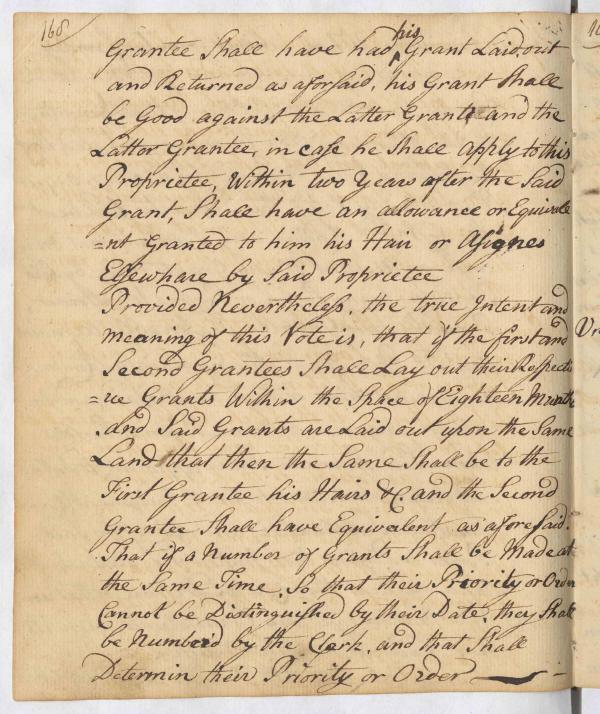 168
Grantee Shall have had his Grant Laid out
and Returned as aforsaid, his Grant Shall
be Good against the Latter Grante and the
Lattor Grantee, in case he Shall apply to this
Proprietee, Within two Years after the Said
Grant, Shall have an allowance or Equivale
=nt Granted to him his Hair or Asignes
Elsewhare by Said Proprietee
Provided Nevertheless, the true Intent and
meaning of this Vote is, that if the first and
Second Grantees Shall Lay out their Respecti
=ve Grants Within the Space of Eighteen Munths
and Said Grants are Laid out upon the Same
Land that then the Same Shall be to the
First Grantee his Hairs &c. and the Second
Grantee Shall have Equivalent as aforesaid.
That if a Number of Grants Shall be Made at
the Same Time, So that their Priority or Order
Cannot be Distinguished by their Date, they Shall
be Numberd by the Clerk, and that Shall
Determin their Priority or Order